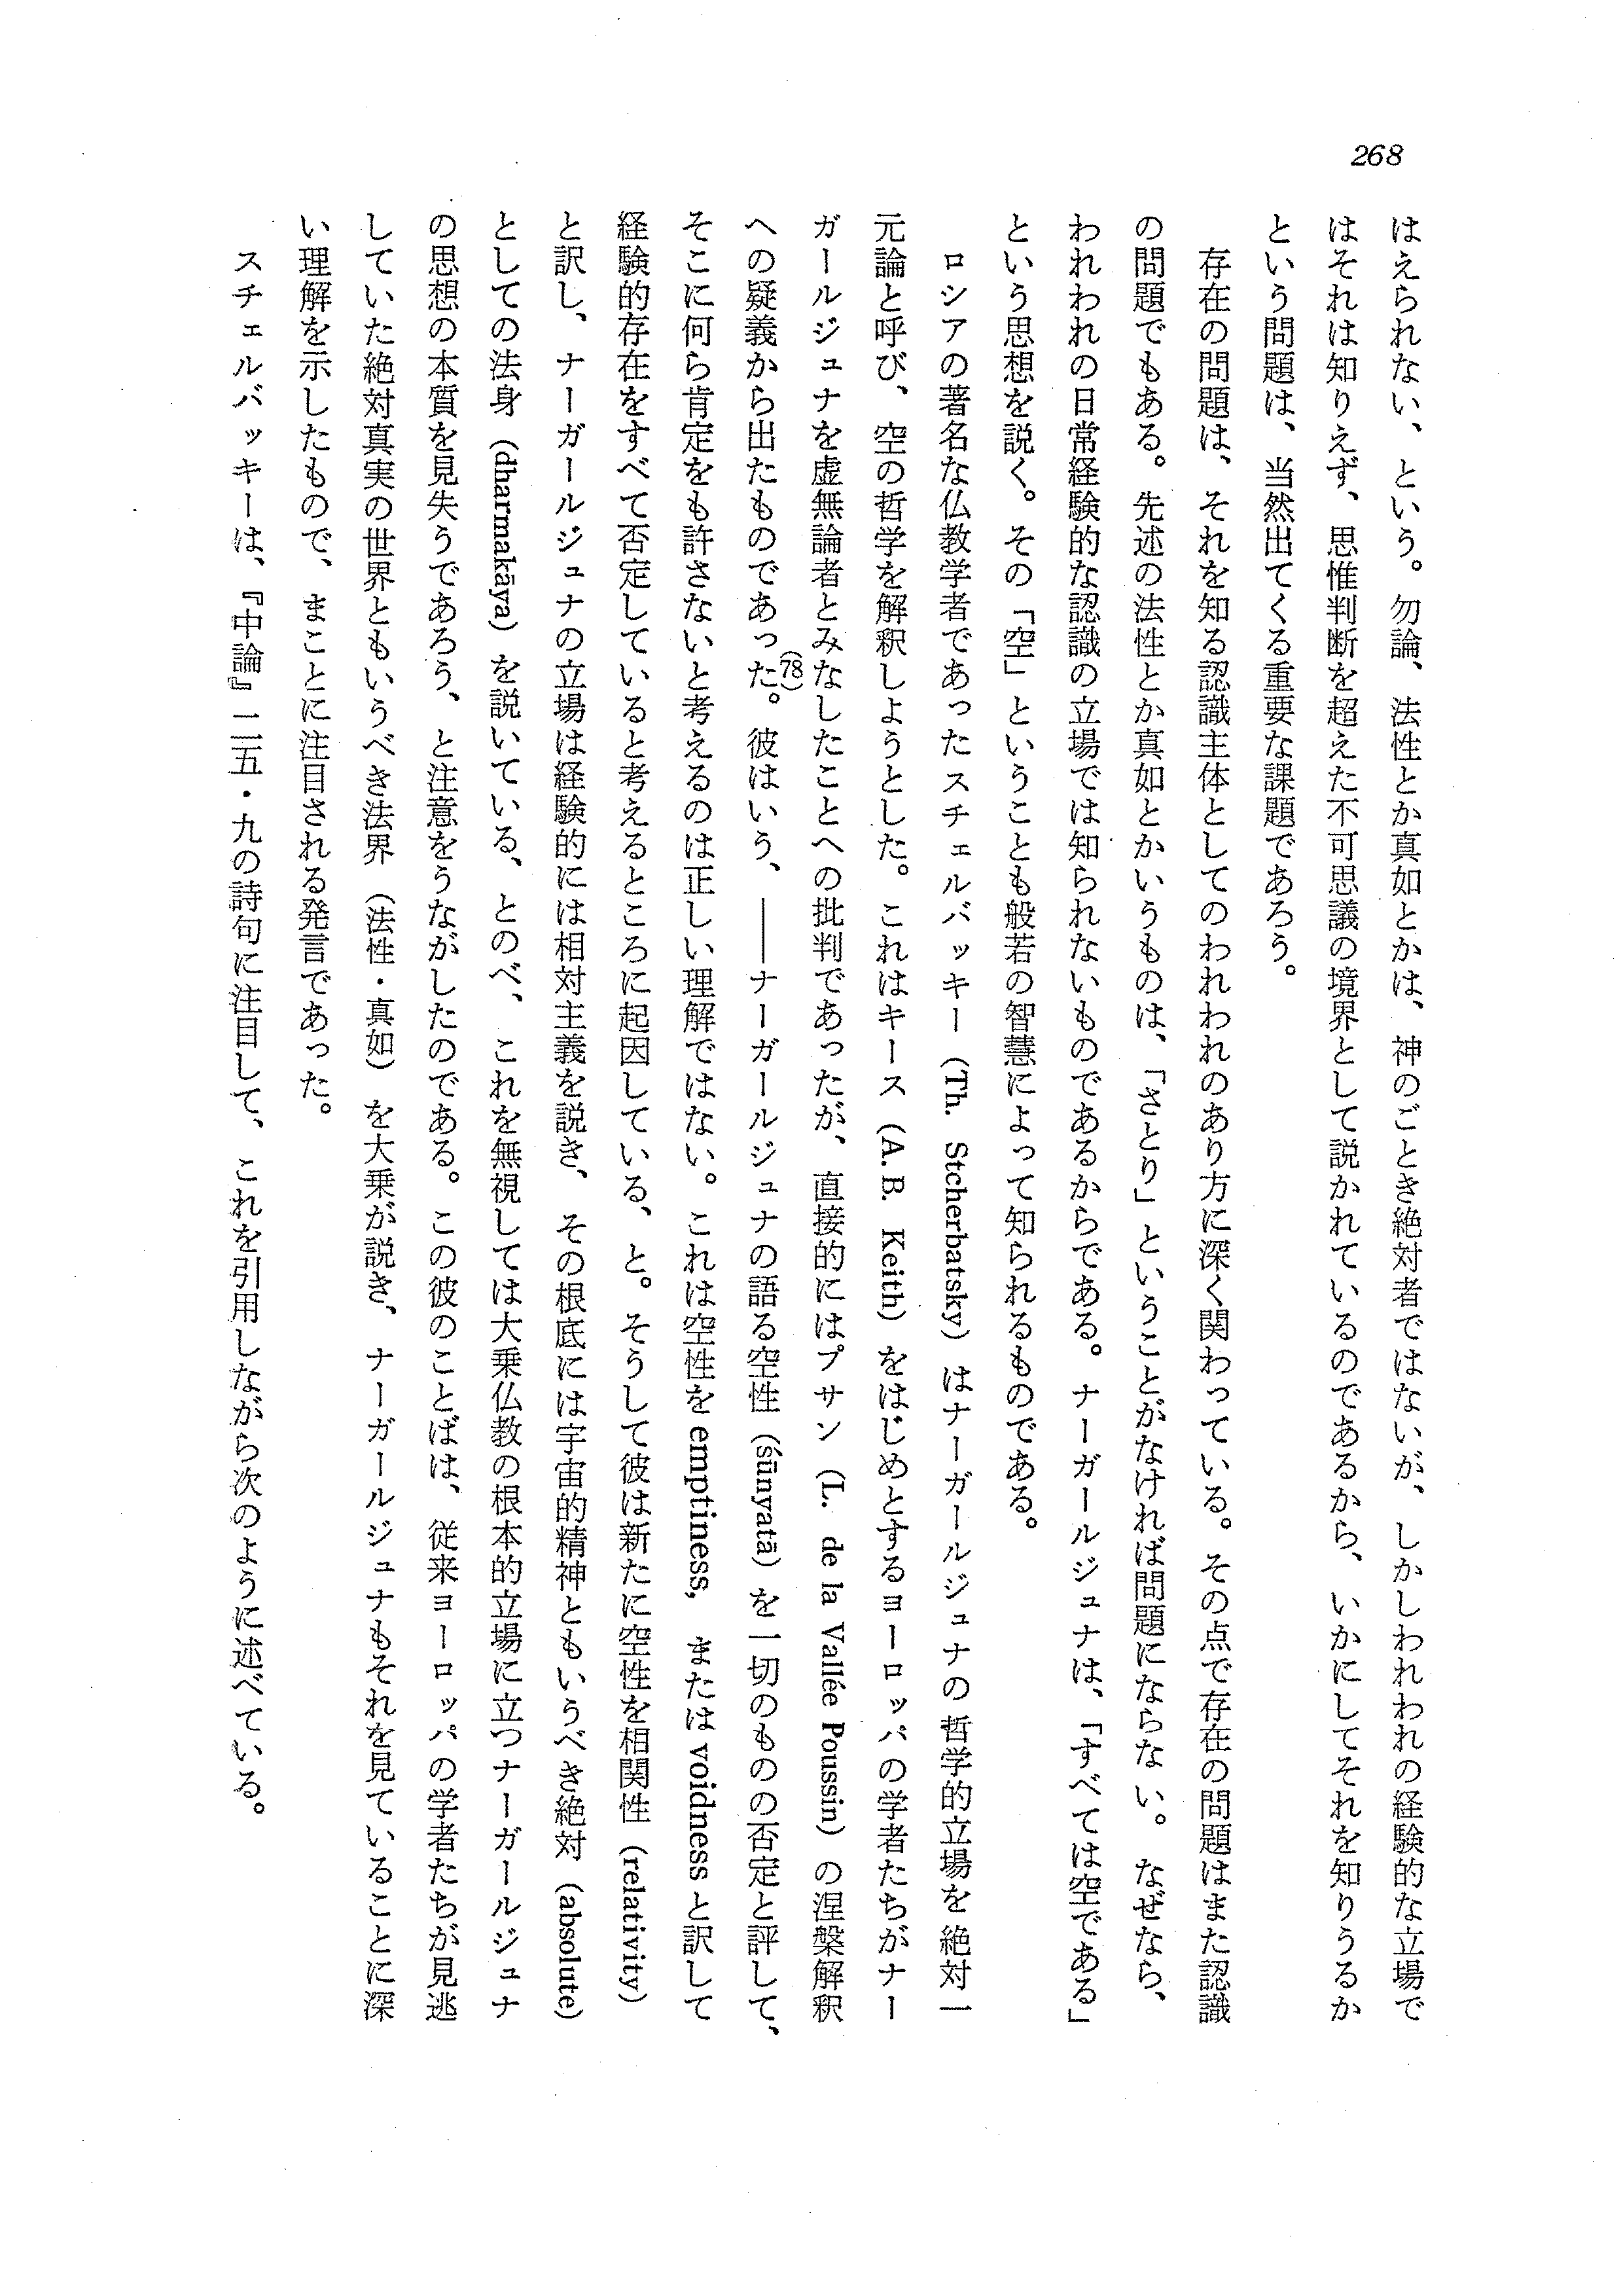 268
はえられない、という。勿論、法性とか真如とかは、神のごとき絶対者ではないが、しかしわれわれの経験的な立場で
はそれは知りえず、思惟判断を超えた不可思議の境界として説かれているのであるから、いかにしてそれを知りうるか
という問題は、当然出てくる重要な課題であろう。
　存在の問題は、それを知る認識主体としてのわれわれのあり方に深く関わっている。その点で存在の問題はまた認識
の問題でもある。先述の法性とか真如とかいうものは、「さとり」ということがなければ問題にならない。なぜなら、
われわれの日常経験的な認識の立場では知られないものであるからである。ナーガールジュナは、「すべては空である」
という思想を説く。その「空」ということも般若の智慧によって知られるものである。
　ロシアの著名な仏教学者であったスチェルバッキー（Th. Stcherbatsky）はナーガールジュナの哲学的立場を絶対一
元論と呼び、空の哲学を解釈しようとした。これはキース（A. B. Keith）をはじめとするヨーロッパの学者たちがナー
ガールジュナを虚無論者とみなしたことへの批判であったが、直接的にはプサン（L. de la Vallée Poussin）の涅槃解釈
への疑義から出たものであった。(78)彼はいう、――ナーガールジュナの語る空性（śūnyatā）を一切のものの否定と評して、
そこに何ら肯定をも許さないと考えるのは正しい理解ではない。これは空性を emptiness, または voidness と訳して
経験的存在をすべて否定していると考えるところに起因している、と。そうして彼は新たに空性を相関性（relativity）
と訳し、ナーガールジュナの立場は経験的には相対主義を説き、その根底には宇宙的精神ともいうべき絶対（absolute）
としての法身（dharmakāya）を説いている、とのべ、これを無視しては大乗仏教の根本的立場に立つナーガールジュナ
の思想の本質を見失うであろう、と注意をうながしたのである。この彼のことばは、従来ヨーロッパの学者たちが見逃
していた絶対真実の世界ともいうべき法界（法性・真如）を大乗が説き、ナーガールジュナもそれを見ていることに深
い理解を示したもので、まことに注目される発言であった。
　スチェルバッキーは、『中論』二五・九の詩句に注目して、これを引用しながら次のように述べている。